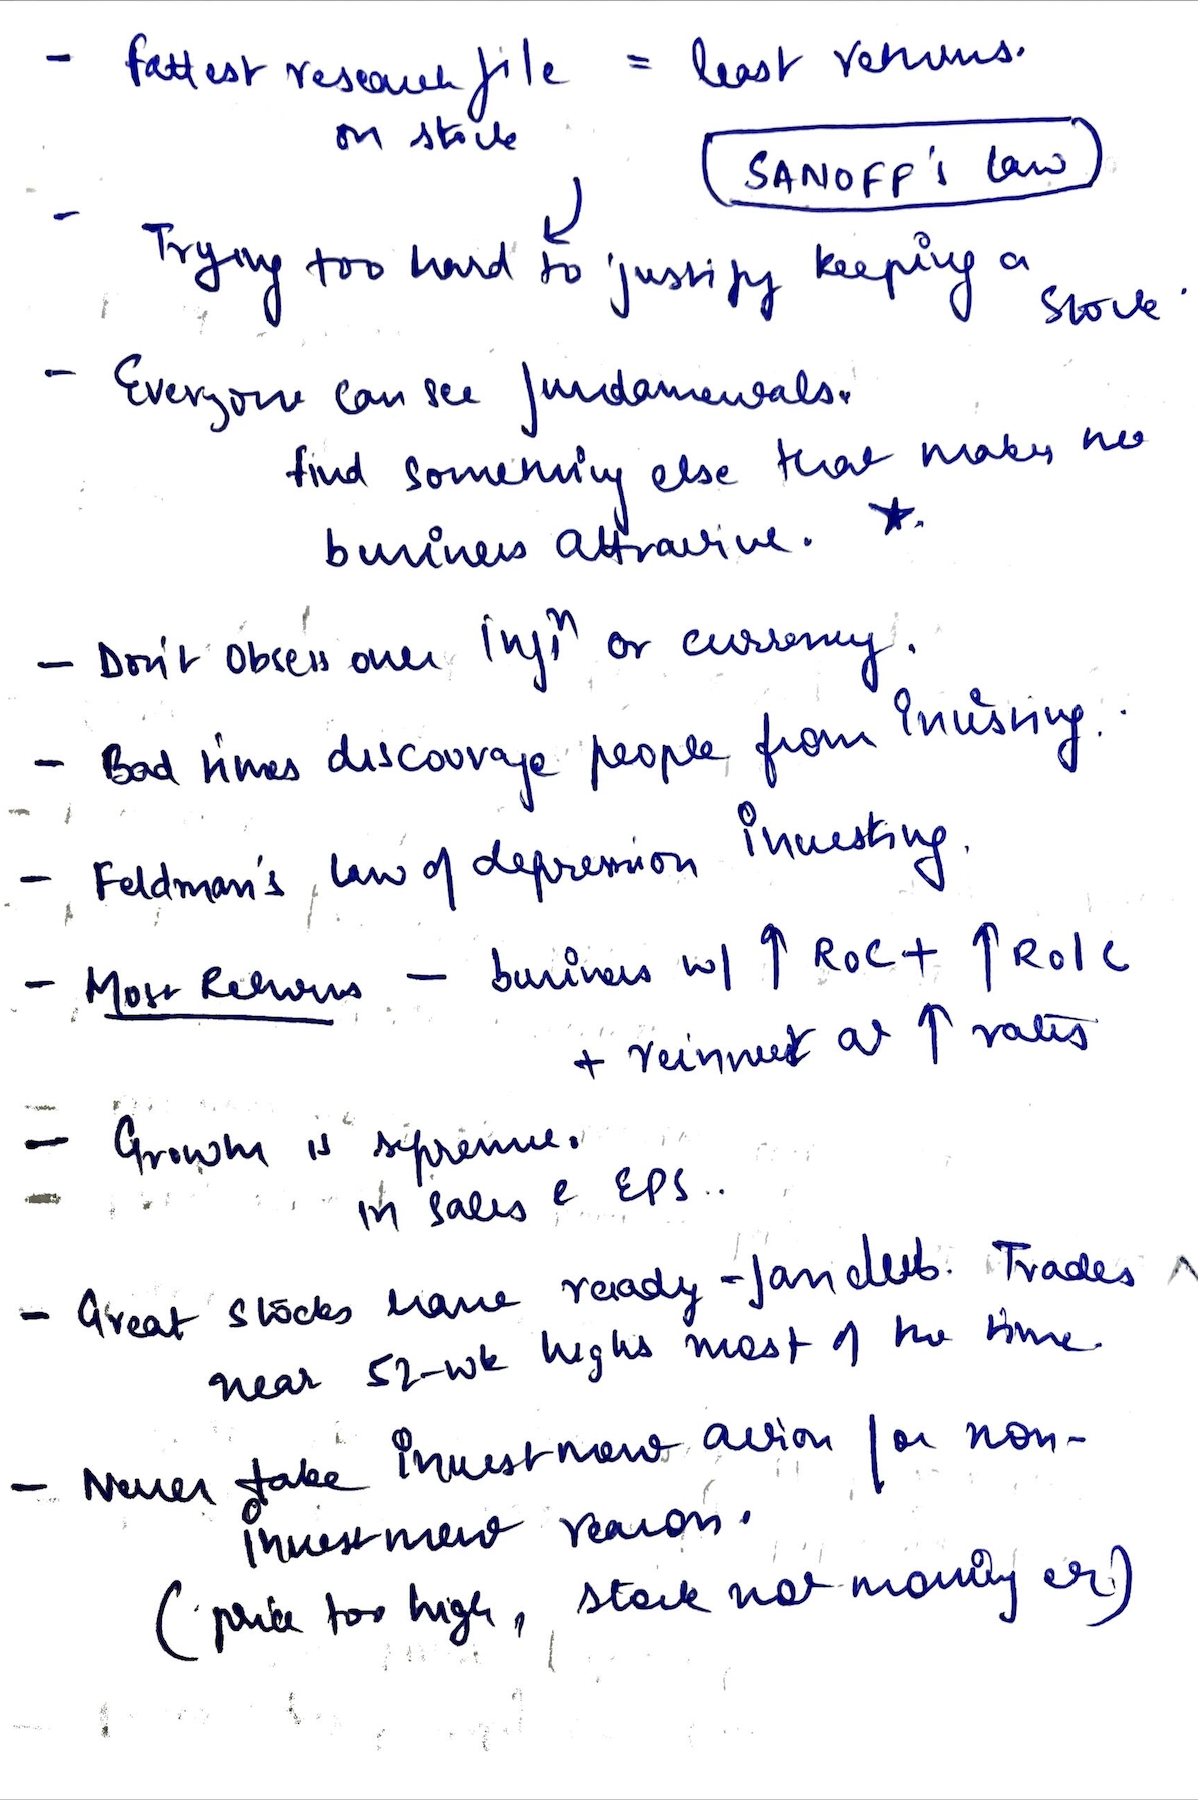 - fattest research file = least returns.
on stock
SANOFF's law
- Trying too hard to justify keeping a
stock.
- Everyone can see fundamentals.
find something else that makes the
business attractive. ★.
- Don't obsess over infⁿ or currency.
- Bad times discourage people from investing.
- Feldman's law of depression investing.
- Most Returns - business w/ ↑ ROC + ↑ ROIC
+ reinvest at ↑ rates
- Growth is supreme.
in sales & EPS..
- Great stocks have ready-fan club. Trades
near 52-wk highs most of the time.
- Never take investment action for non-
investment reason.
(price too high, stock not moving etc)